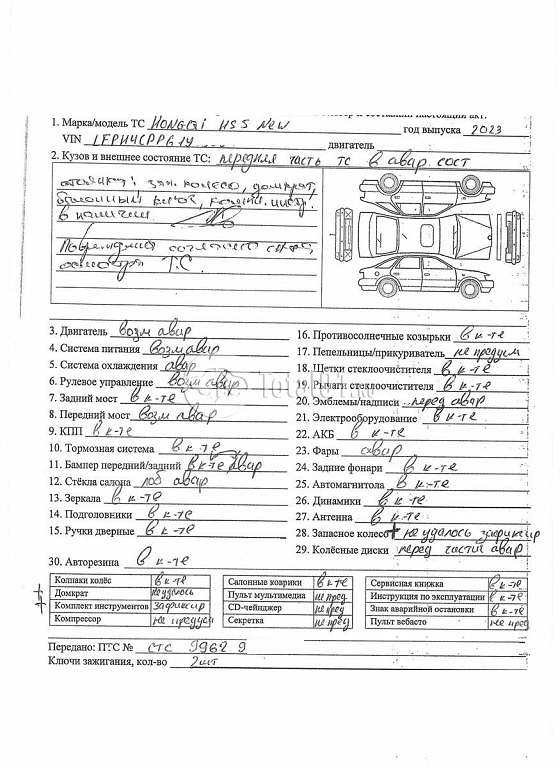 1. Марка/модель ТС HONGQI HS5 NEW год выпуска 2023
VIN LFPH4CPP614 двигатель
2. Кузов и внешнее состояние ТС: передняя часть ТС в авар. сост
зап. колесо, домкрат,
балонный ключ, инстр.
в наличии.
Повреждения согласно
осмотра Т.С.
3. Двигатель возм авар
4. Система питания возм авар
5. Система охлаждения авар
6. Рулевое управление возм авар
7. Задний мост в к-те
8. Передний мост возм авар
9. КПП в к-те
10. Тормозная система в к-те
11. Бампер передний/задний в к-те авар
12. Стёкла салона лоб авар
13. Зеркала в к-те
14. Подголовники в к-те
15. Ручки дверные в к-те
16. Противосолнечные козырьки в к-те
17. Пепельницы/прикуриватель не предусм
18. Щетки стеклоочистителя в к-те
19. Рычаги стеклоочистителя в к-те
20. Эмблемы/надписи перед авар
21. Электрооборудование в к-те
22. АКБ в к-те
23. Фары авар
24. Задние фонари в к-те
25. Автомагнитола в к-те
26. Динамики в к-те
27. Антенна в к-те
28. Запасное колесо + не удалось зафиксир
29. Колёсные диски перед части авар
30. Авторезина в к-те
Колпаки колёс в к-те
Домкрат не удалось
Комплект инструментов зафиксир
Компрессор не предусм
Салонные коврики в к-те
Пульт мультимедиа не пред
CD-чейнджер не пред
Секретка не пред
Сервисная книжка в к-те
Инструкция по эксплуатации в к-те
Знак аварийной остановки в к-те
Пульт вебасто не пред
Передано: ПТС № СТС 9962 9
Ключи зажигания, кол-во 2шт